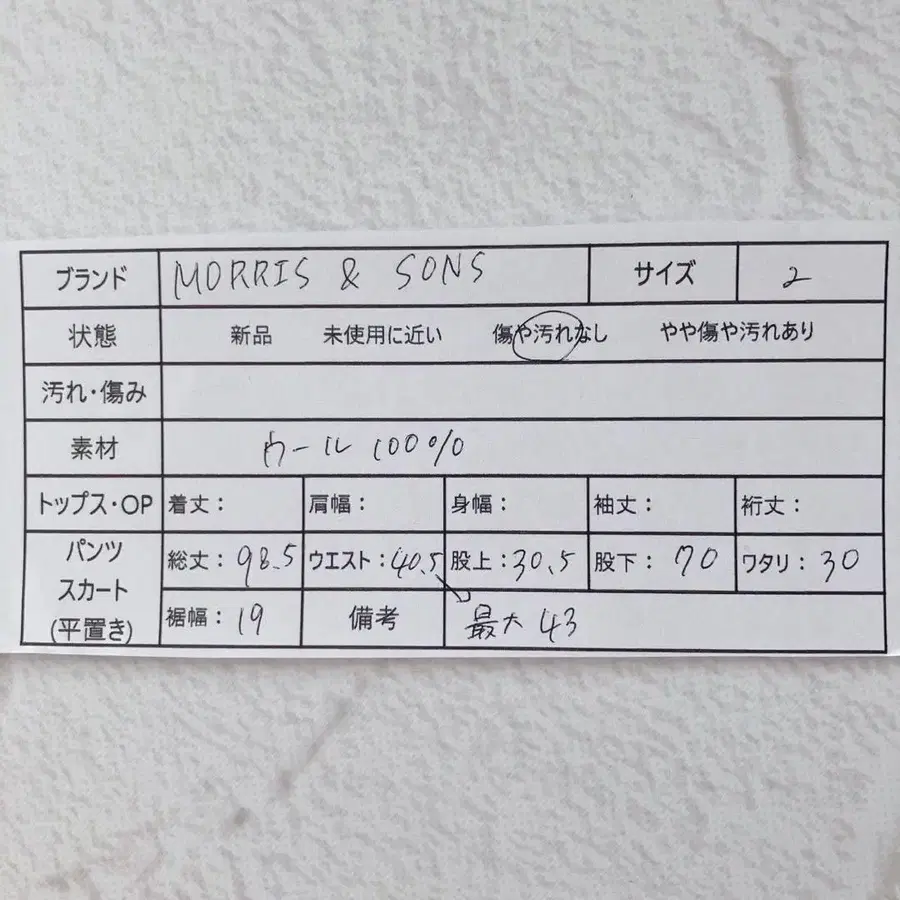 ブランド MORRIS & SONS サイズ 2
状態 新品 未使用に近い 傷や汚れなし やや傷や汚れあり
汚れ・傷み
素材 ウール 100%
トップス・OP 着丈： 肩幅： 身幅： 袖丈： 裄丈：
パンツ スカート (平置き) 総丈：98.5 ウエスト：40.5 股上：30.5 股下：70 ワタリ：30
裾幅：19 備考 最大 43